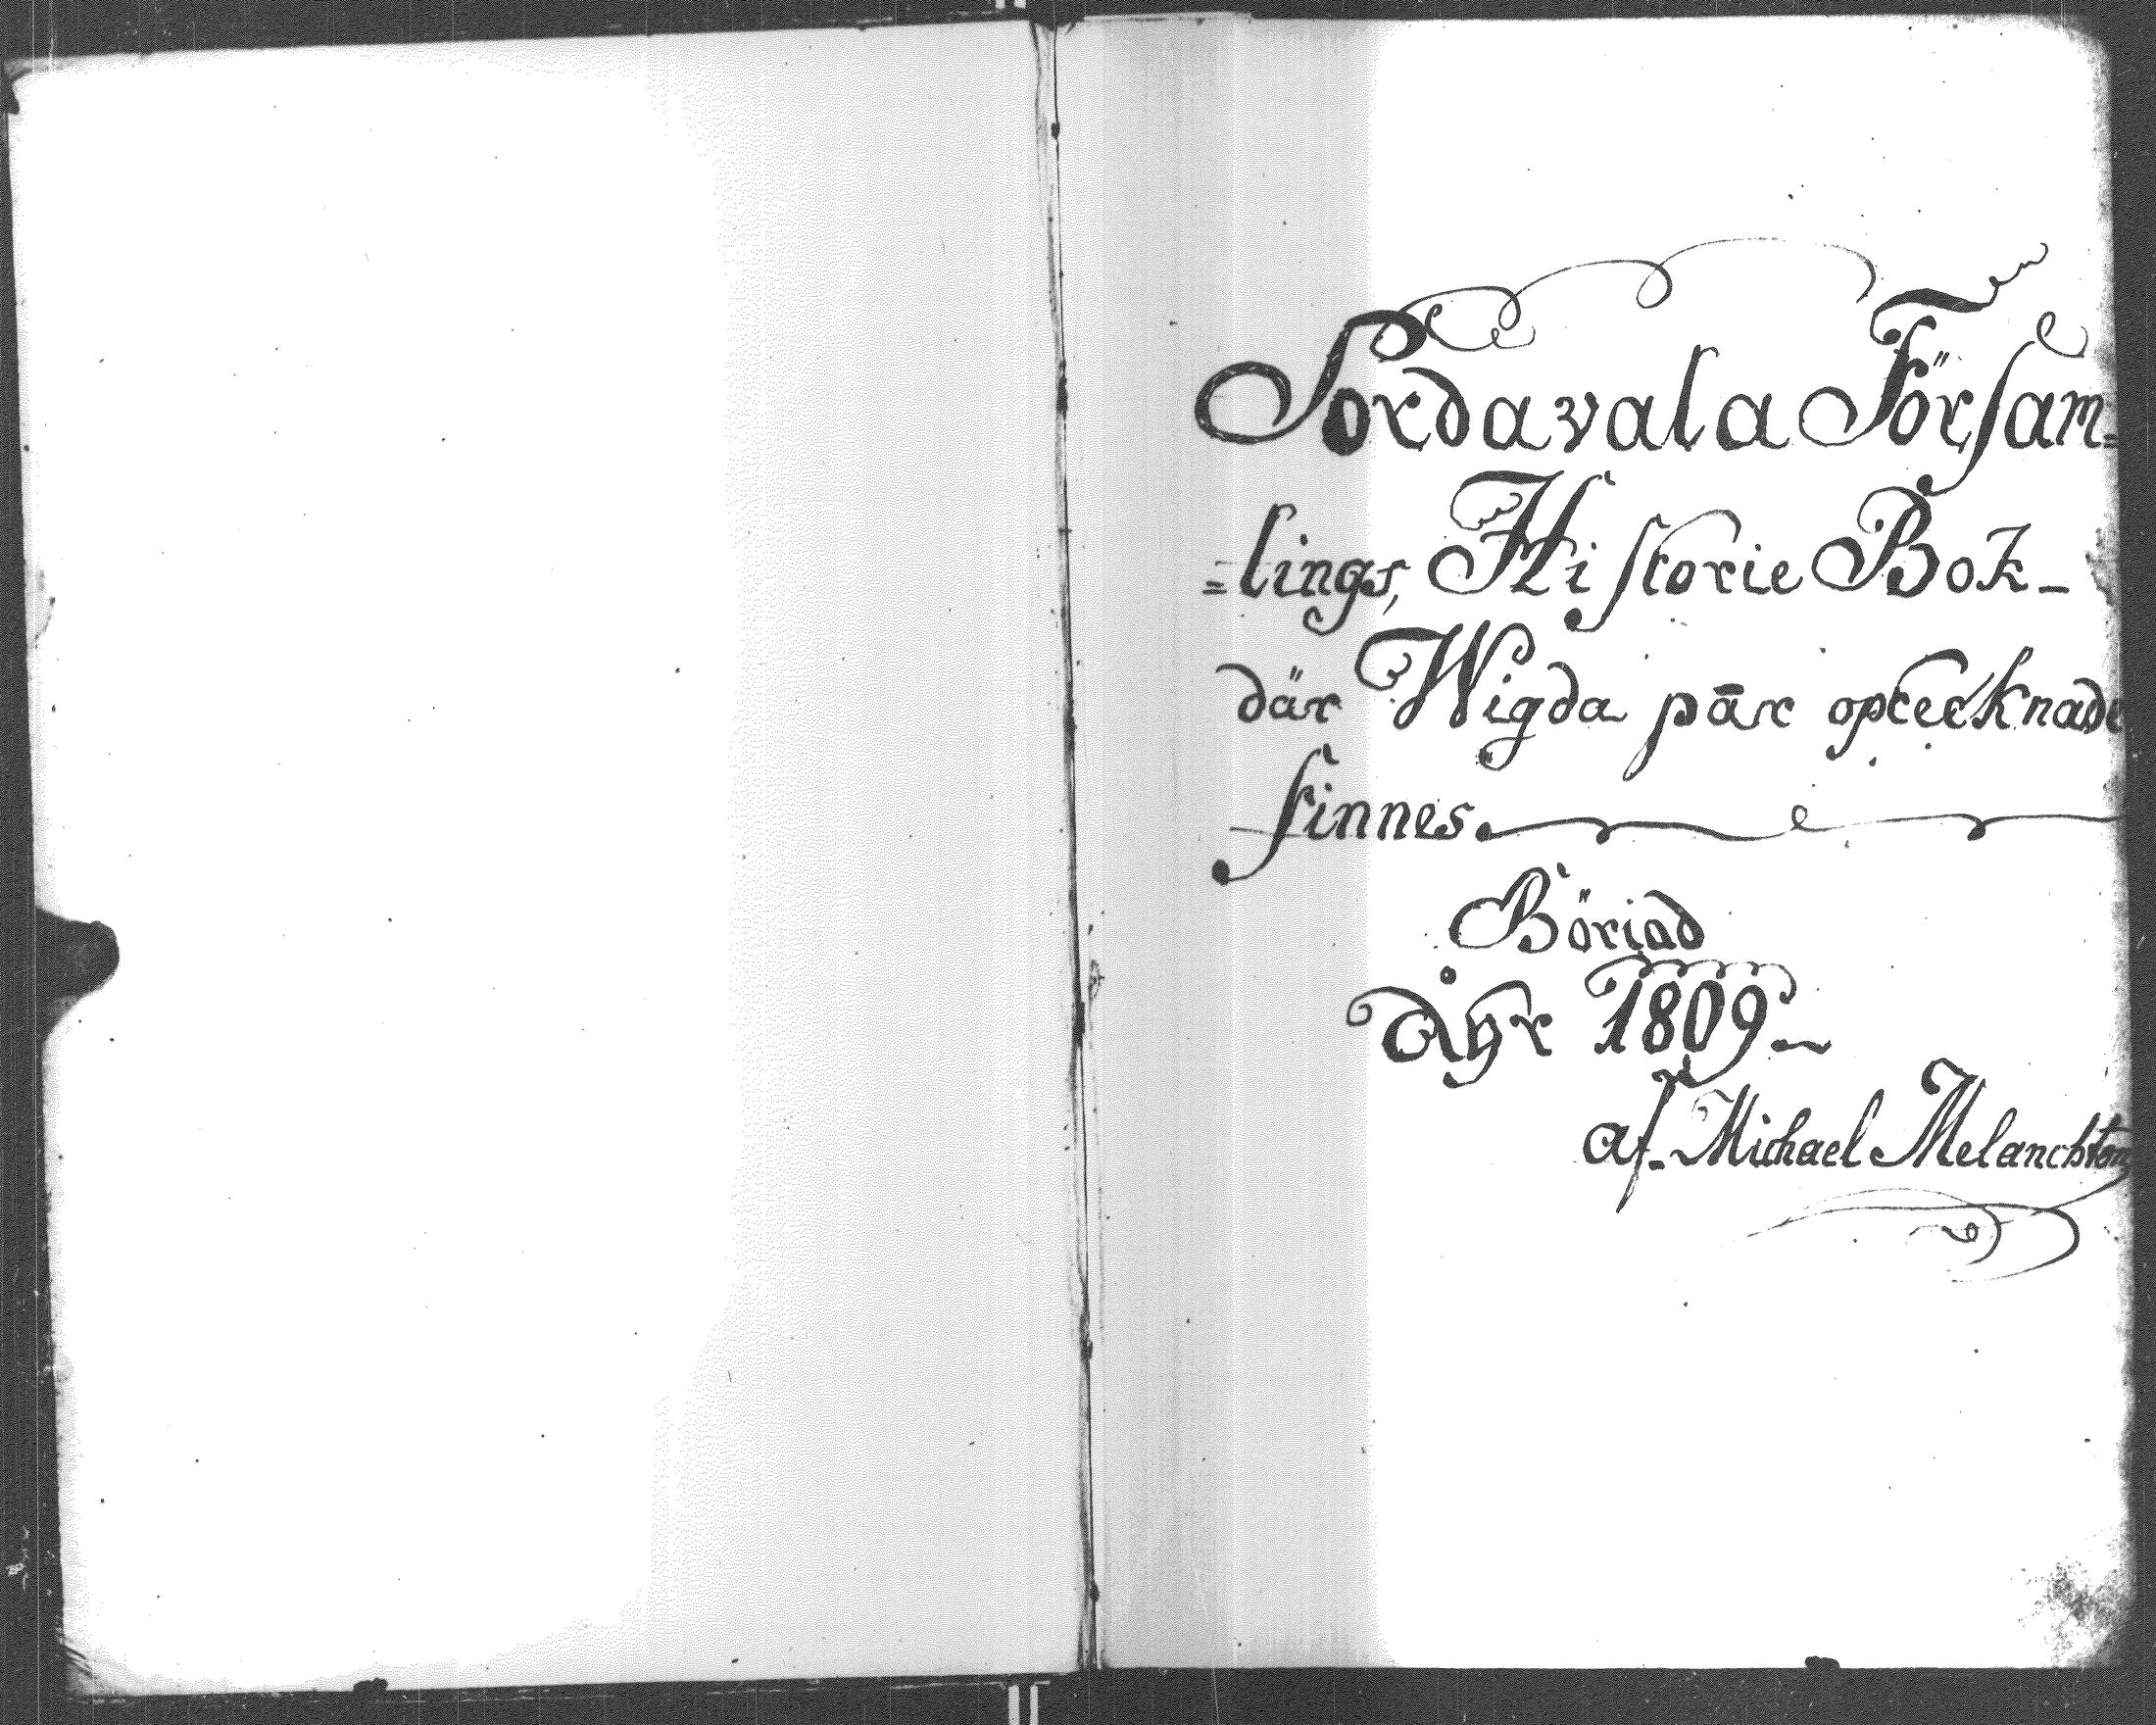 Sordavala Försam=
=lings, Historie Bok -
där Wigda pār optecknade
finnes
Böriad
åhr 1809
af. Michael Melanchton